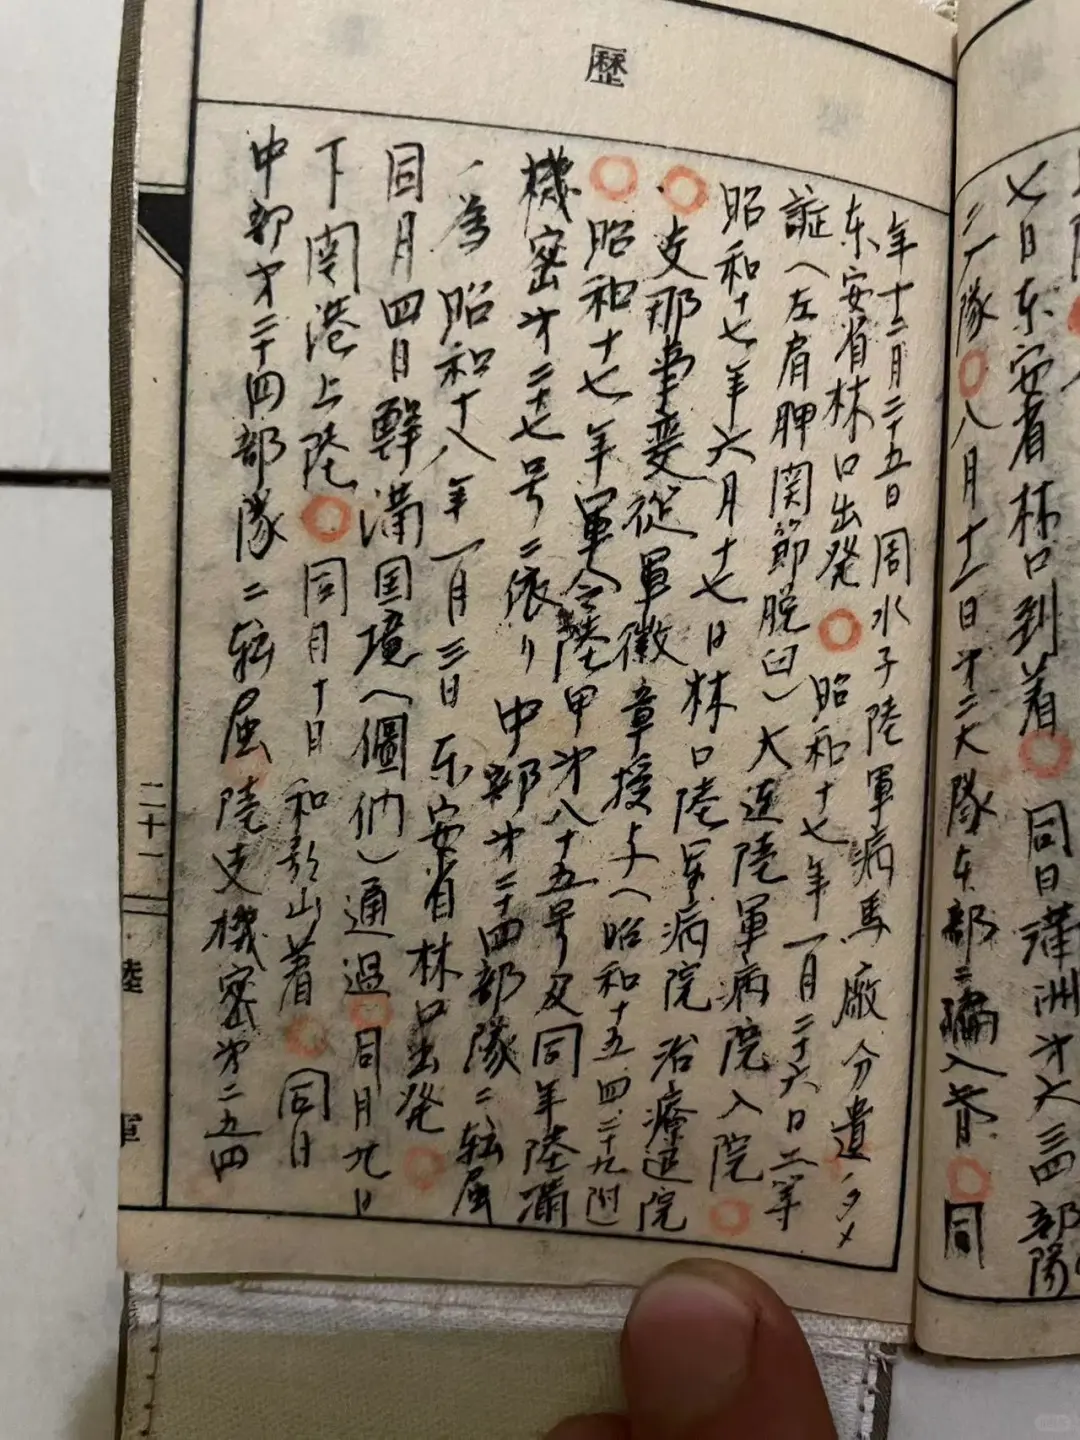 七日东安省林口到着〇同日満洲第六三四部隊
二入隊〇八月十一日第二大隊本部ニ編入〇同
歷
年十二月二十五日周水子陸軍病馬廠分遣ノタメ
东安省林口出発〇昭和十七年一月二十六日二等
症(左肩胛関節脱臼)大連陸軍病院入院〇
昭和十七年六月十七日林口陸軍病院治療退院
〇支那事変從軍徽章授与(昭和十五、四、二十九附)
〇昭和十七年軍令陸甲第八十五号及同年陸満
機密第二十七号ニ依リ中部第二十四部隊ニ転属
ノ為昭和十八年一月三日东安省林口出発〇
同月四日鮮満国境(圖們)通過〇同月九日
下関港上陸〇同月十日和歌山着〇同日
中部第二十四部隊ニ転属陸支機密第二五四
二十一
陸
軍